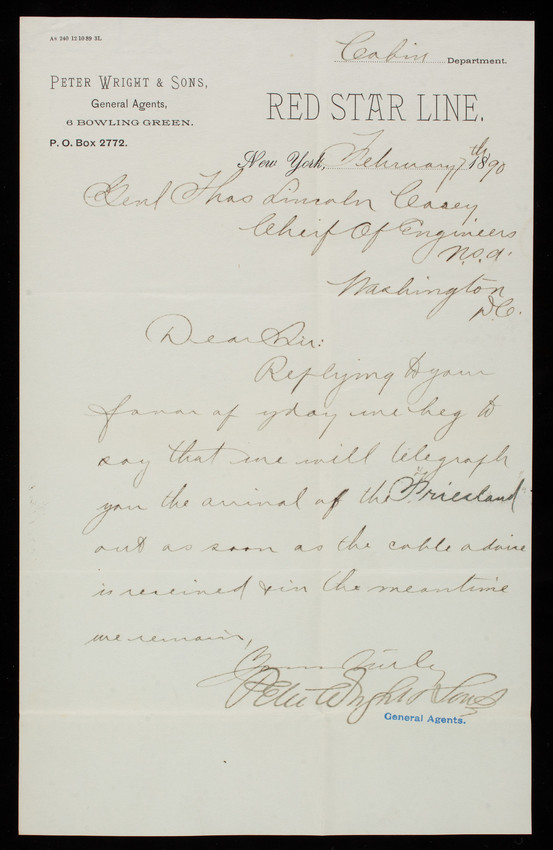 A8 248 12 10 89 3L
Cabin Department.
PETER WRIGHT & SONS,
General Agents,
6 BOWLING GREEN.
P. O. Box 2772.
RED STAR LINE.
New York, February 7th 1890
Genl Thos Lincoln Casey
Chief Of Engineers
U.S.A.
Washington
D.C.
Dear Sir:
Replying to your
favor of yday we beg to
say that we will telegraph
you the arrival of the "Friesland"
out as soon as the cable advice
is received & in the meantime
we remain,
Yours truly
Peter Wright & Sons
General Agents.